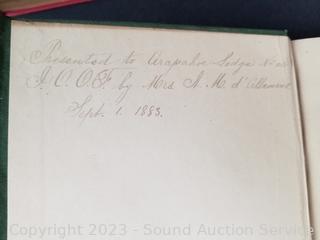 Presented to Arapahoe Lodge No
I. O. O. F. by Mrs. A. M. d'Allemand
Sept. 1. 1883.
Copyright 2023 - Sound Auction Service